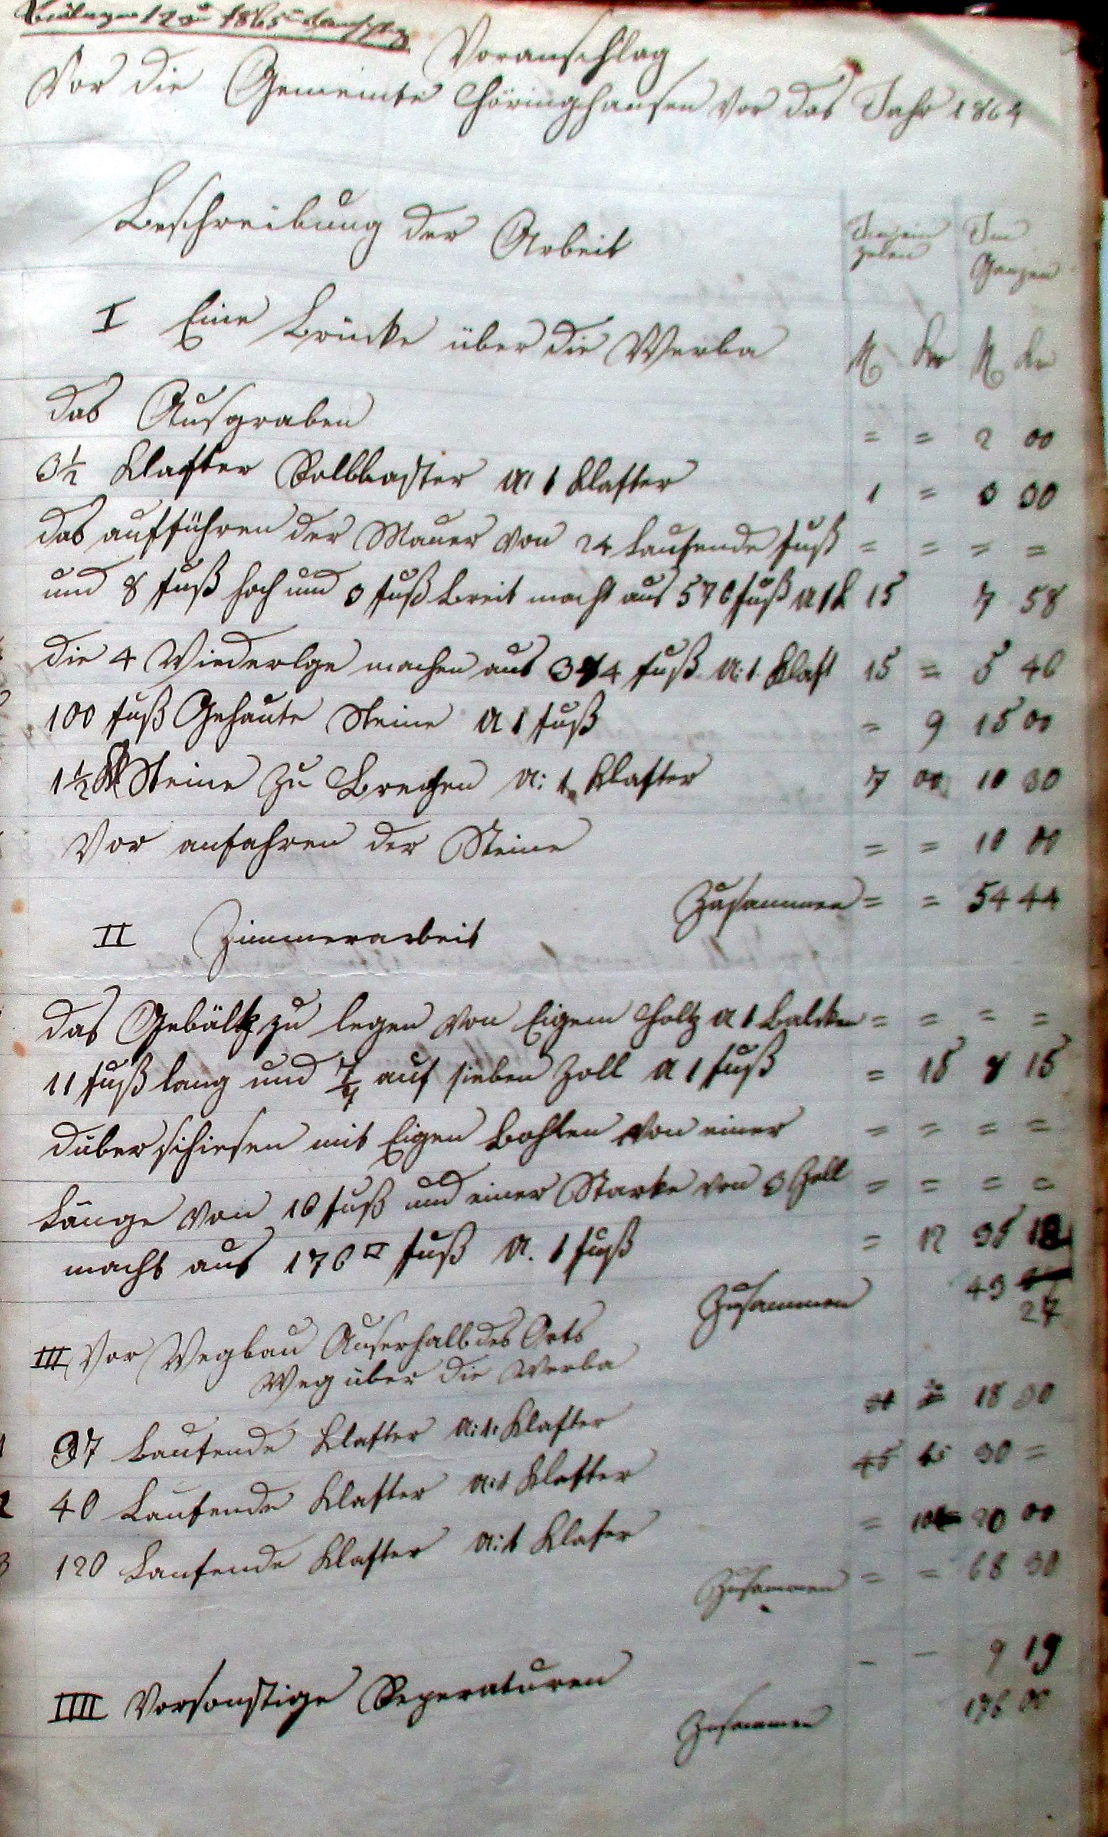 Voranschlag
Vor die Gemeinte Höringhausen vor das Jahr 1864
Beschreibung der Arbeit
Im ein zelen
Im Ganzen
I Eine Brücke über die Werba fl Kr fl Kr
das Ausgraben = = 2 00
3½ Klafter Rollblaster a: 1 Klafter 1 = 3 30
das aufführen der Mauer von 24 Laufende fuß = = = =
und 8 fuß hoch und 3 fuß Breit macht aus 576 fuß a 1 k 15 7 58
die 4 Wiederlge machen aus 374 fuß a: 1 Klaft 15 = 5 46
100 fuß Gehaute Steine a 1 fuß = 9 15 00
1½ Kl Steine zu Brechen a: 1 Klafter 7 00 10 30
Vor anfahren der Steine = = 10 00
Zusammen = = 54 44
II Zimmerarbeit
das Gebälk zu legen von Eigem Holtz a 1 Balcken = = = =
11 fuß lang und 7/7 auf sieben Zoll a 1 fuß = 15 8 15
düberschiesen mit Eigen Bohlen von einer = = = =
Länge von 16 fuß und einer Starke von 3 Zoll = = = =
macht aus 176 □ fuß a. 1 fuß = 12 35 12
Zusammen 43 27
III Vor Wegbau Auserhalb des Orts
Weg über die Werba
1 37 Laufende Klafter a: 1: Klafter 18 30
2 40 Laufende Klafter a: 1 Klafter 45 30 =
3 120 Laufende Klafter a: 1 Klafer = 10 20 00
Zusammen = = 68 30
IIII Vorsonstige Reperaturen - - 9 19
Zusammen 176 00